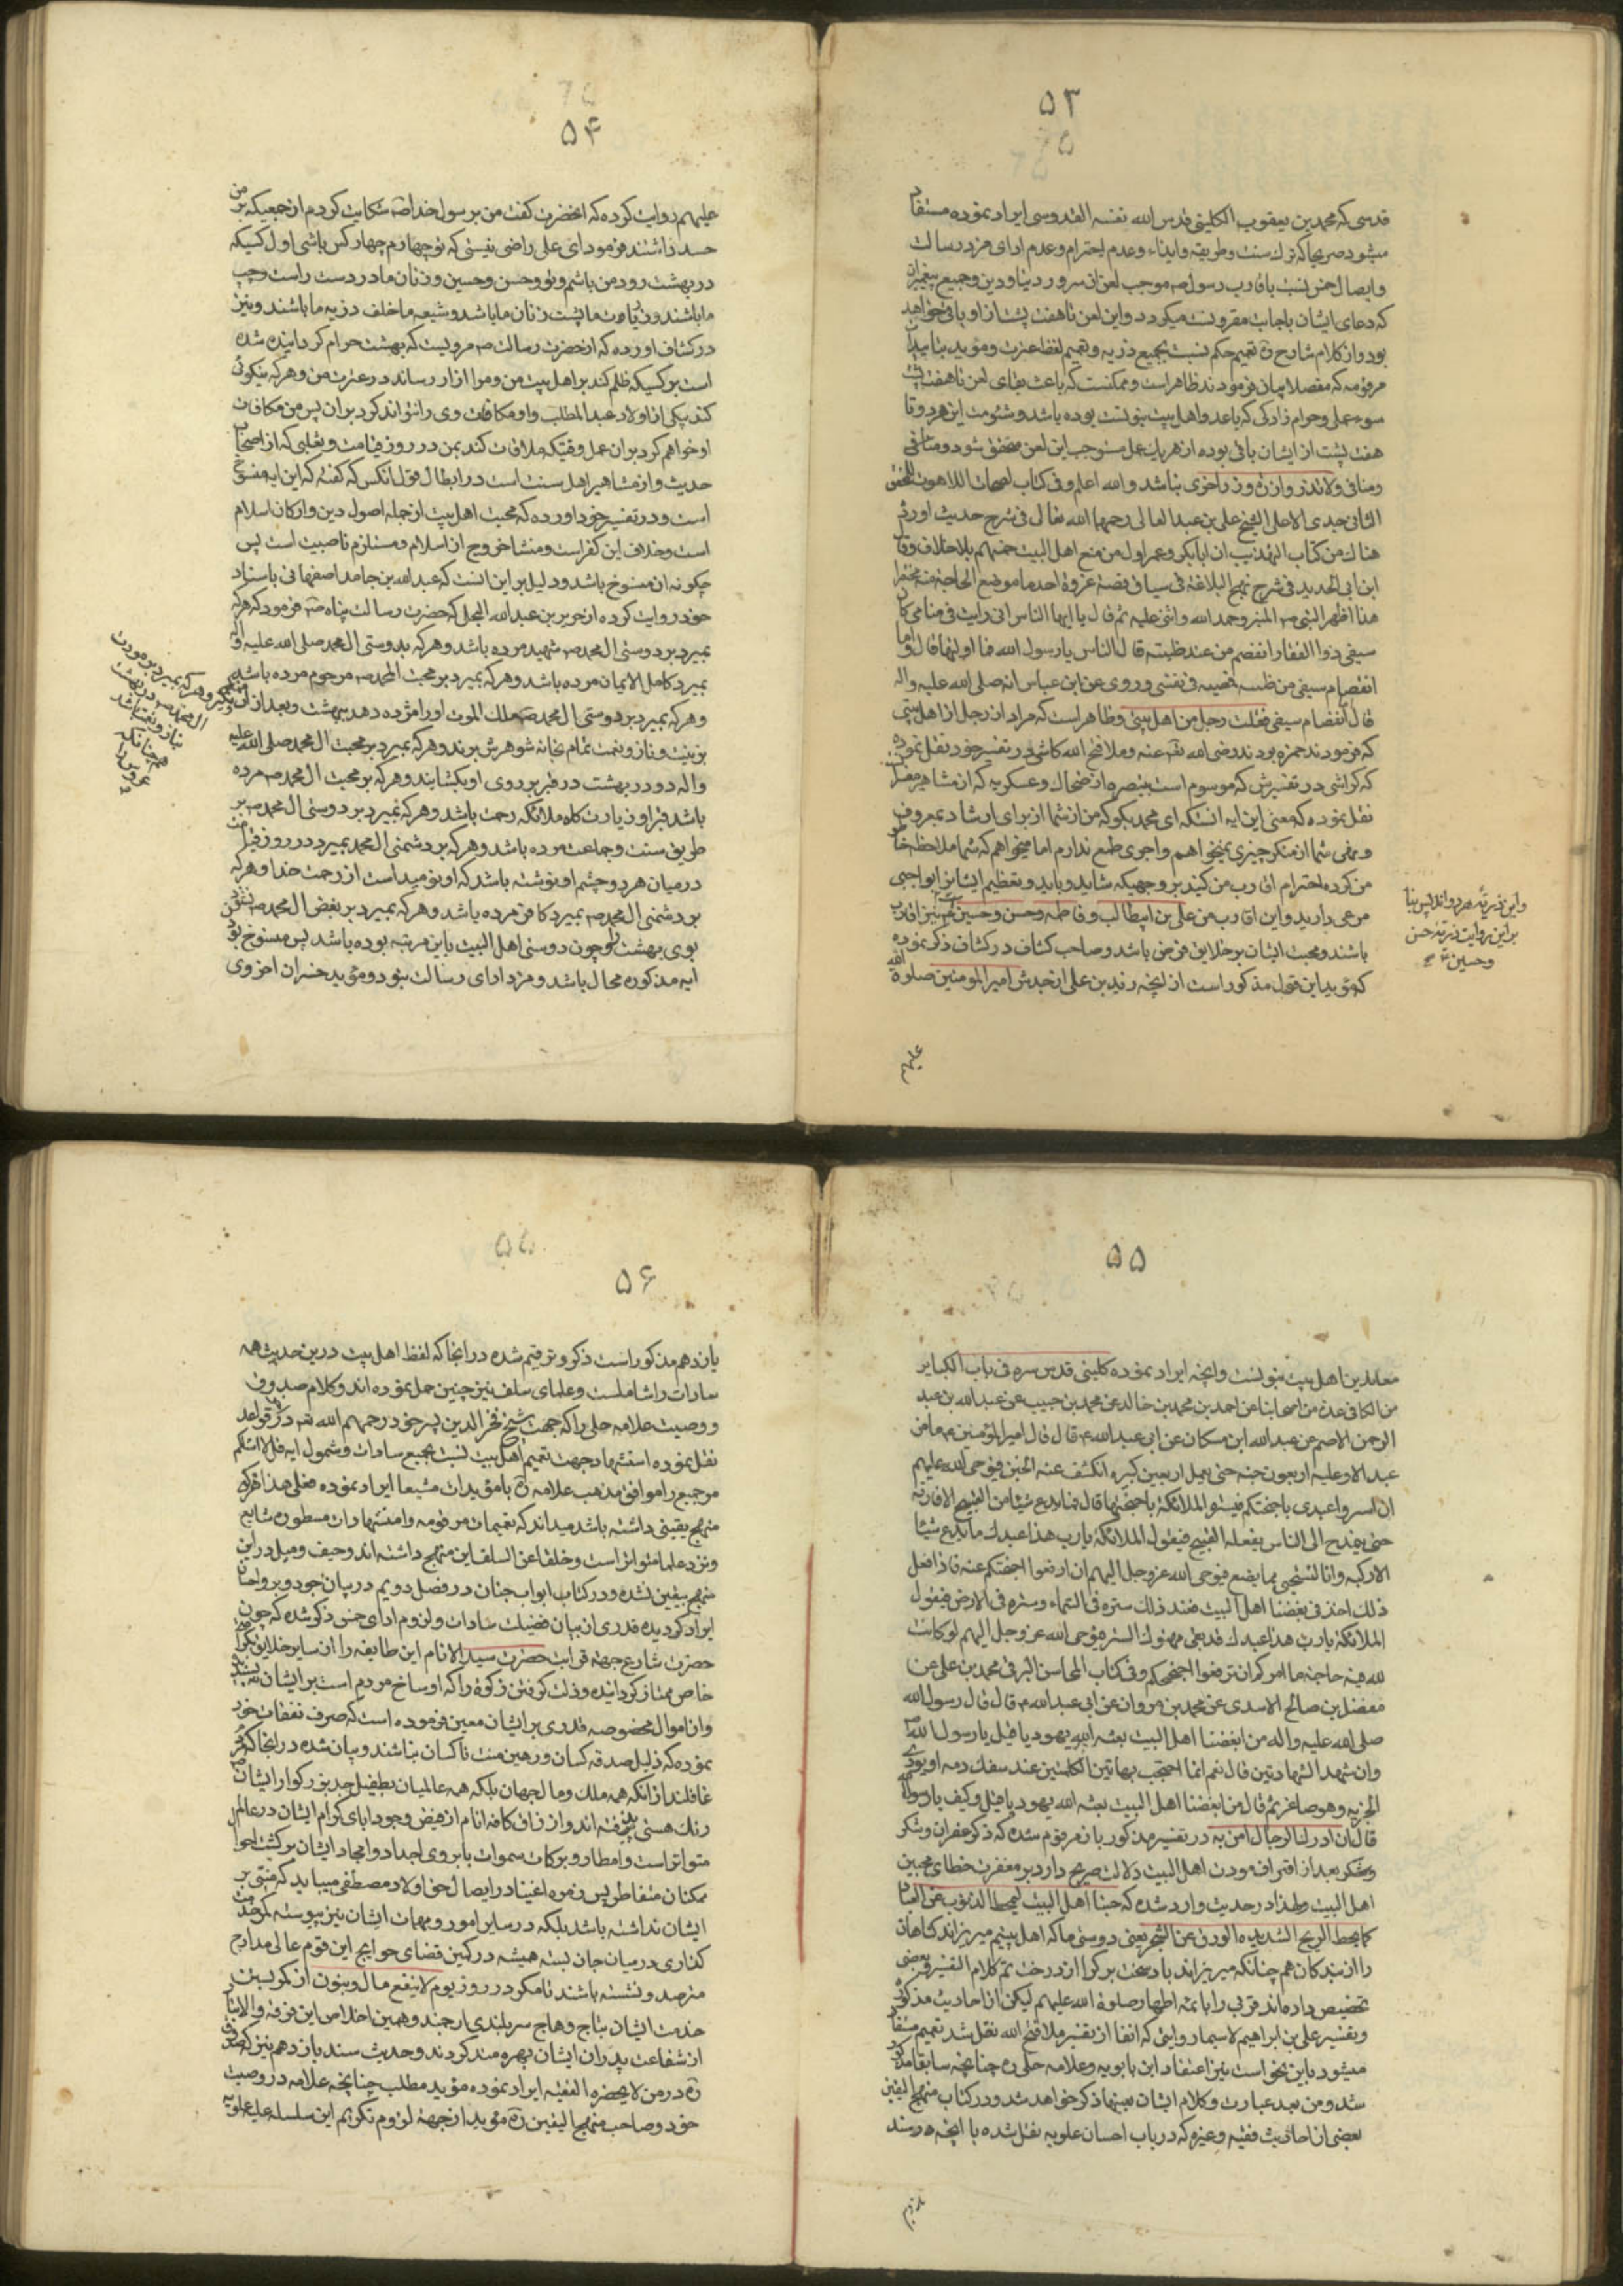 ۵۳
قدسی که محمد بن یعقوب الکلینی قدس الله نفسه القدوسی ایراد نموده مستفاد
میشود صریحا که ترک سنت و طریقه و ایذاء و عدم احترام و عدم ادای مزد رسالت
و ایصال خمس نسبت باقارب رسول صه موجب لعن آن سرور دنیا و دین و جمیع پیغمبران
که دعای ایشان باجابت مقرونست میگردد و این لعن تا هفت پشت از او باقی خواهد
بود و از کلام شارح ره تعمیم حکم نسبت بجمیع ذریه و تعمیم لفظ عترت و موید بنابیان
مرقومه که مفصلا بیان فرمودند ظاهر است و ممکنست که باعث بقای لعن تا هفت پشت
سوء عمل و حرام زادگی که باعد و اهل بیت نبوتست بوده باشد و شئومت این هر دو تا
هفت پشت از ایشان باقی بوده از هر یک عمل مستوجب این لعن متحقق شود و منافی
و منافی ولا تزر وازرة وزر اخری نباشد و الله اعلم و فی کتاب لمعات اللاهوت للمحقق
الثانی جدی الاعلی الشیخ علی بن عبد العالی رحمهما الله تعالی فی شرح حدیث اورثه
هناک من کتاب التهذیب ان ابابکر و عمر اول من منع اهل البیت خمسهم بلا خلاف و قال
ابن ابی الحدید فی شرح نهج البلاغة فی سیاق قصة غزوة احد ما موضع الحاجة منه مختصرا
هذا فظهر النبی صه المنبر و حمد الله و اثنی علیه ثم قال یا ایها الناس انی رایت فی منامی کان
سیفی ذوا الفقار انفصم من عند ظبته قال الناس یا رسول الله فما اولتها قال و اما
انفصام سیفی من ظبته فمصیبة فی نفسی و روی عن ابن عباس انه صلی الله علیه و اله
قال انفصام سیفی فقتل رجل من اهل بیتی و ظاهر است که مراد از رجل از اهل بیتی
که فرمودند حمزه بود رضی الله عنه و ملا فتح الله کاشی در تفسیر خود نقل نموده
که کواشی در تفسیرش که موسوم است بتبصره از ضحاک و عسکریه که از مشاهیر مفسرا
نقل نموده که معنی این ایه انستکه ای محمد بگو که من از شما از برای ارشاد بمعروف
و نهی شما از منکر چیزی نمیخواهم و اجری طمع ندارم اما میخواهم که شما ملاحظه خاطر
من کرده احترام اقارب من کنید بر وجهیکه شاید و باید و تعظیم ایشان را بواجبی
مرعی دارید و این اقارب من علی بن ابیطالب و فاطمه و حسن و حسین نیز اقارب
باشند و محبت ایشان بر خلایق فرض باشد و صاحب کشاف در کشاف ذکر نموده
که موید این قول مذکور است از انچه زید بن علی از جدش امیر المومنین صلوة الله
علیهم
و این ذریه هر دو اند پس بنا
بر این روایت ذریه حسن
و حسین
۵۴
علیهم روایت کرده که انحضرت گفت من برسول خدا صه شکایت کردم از جمعیکه بر من
حسد داشتند فرمود ای علی راضی نیستی که تو چهارم چهار کس باشی اول کسیکه
در بهشت رود من باشم و تو و حسن و حسین و زنان ما در دست راست و چپ
ما باشند و ذریات ما پشت زنان ما باشد و شیعه ما خلف ذریه ما باشند و نیز
در کشاف اورده که از حضرت رسالت صه مرویست که بهشت حرام گردانیده شده
است بر کسیکه ظلم کند بر اهل بیت من و مرا ازار رساند در عترت من و هر که نیکوئی
کند بیکی از اولاد عبد المطلب و او مکافات وی را نتواند کرد بر ان پس من مکافات
او خواهم کرد بر ان عمل وقتیکه ملاقات کند بمن در روز قیامت و ثعلبی که از اصحاب
حدیث و از مشاهیر اهل سنت است در ابطال قول انکس که گفته که این ایه منسوخ
است و در تفسیر خود اورده که محبت اهل بیت از جمله اصول دین و ارکان اسلام
است و خلاف این کفر است و منشا خروج از اسلام و مستلزم ناصبیت است پس
چگونه ان منسوخ باشد و دلیل بر این انست که عبد الله بن حامد اصفهانی باسناد
خود روایت کرده از جریر بن عبد الله البجلی که حضرت رسالت پناه صه فرمود که هر که
بمیرد بر دوستی ال محمد صه شهید مرده باشد و هر که بر دوستی ال محمد صلی الله علیه و اله
بمیرد کامل الایمان مرده باشد و هر که بمیرد بر محبت ال محمد صه مرحوم مرده باشد
و هر که بمیرد بر دوستی ال محمد صه ملک الموت او را مژده دهد ببهشت و بعد از ان
بزینت و ناز و نعمت تمام بخانه شوهرش برند و هر که بمیرد بر محبت ال محمد صلی الله علیه
و اله دو در بهشت در قبر بر روی او بگشایند و هر که بر محبت ال محمد صه مرده
باشد قبر او زیارت گاه ملائکه رحمت باشد و هر که بمیرد بر دوستی ال محمد صه بر
طریق سنت و جماعت مرده باشد و هر که بر دشمنی ال محمد بمیرد در روز قیامت
در میان هر دو چشم او نوشته باشد که او نومید است از رحمت خدا و هر که
بر دشمنی ال محمد صه بمیرد کافر مرده باشد و هر که بمیرد بر بغض ال محمد صه نشنود
بوی بهشت و چون دوستی اهل البیت باین مرتبه بوده باشد پس منسوخ بودن
ایه مذکوره محال باشد و مزد ادای رسالت نبود و موید خسران اخروی
و هر که بمیرد بر مودت
ال محمد صه در بهشت
بناز و نعمت باشد
همچنانکه
عروس را
۵۵
معاندین اهل بیت نبوتست و انچه ایراد نموده کلینی قدس سره فی باب الکبایر
من الکافی عدة من اصحابنا عن احمد بن محمد بن خالد عن محمد بن حبیب عن عبد الله بن عبد
الرحمن الاصم عن عبد الله ابن مسکان عن ابی عبد الله ع قال قال امیر المؤمنین ع ما من
عبد الا و علیه اربعون جنة حتی یعمل اربعین کبیرة انکشف عنه الجنن فیوحی الله علیهم
ان استروا عبدی باجنحتکم فیستره الملائکة باجنحتها قال فما یدع شیئا من القبیح الا قارفه
حتی یمتدح الی الناس بفعله القبیح فیقول الملائکة یا رب هذا عبدک ما یدع شیئا
الا رکبه و انا لنستحیی مما یصنع فیوحی الله عز و جل الیهم ان ارفعوا اجنحتکم عنه فاذا فعل
ذلک اخذ فی بغضنا اهل البیت فعند ذلک ستره فی السماء و ستره فی الارض فیقول
الملائکة یا رب هذا عبدک قد بقی مهتوک الستر فیوحی الله عز و جل الیهم لو کانت
لله فیه حاجة ما امرکم ان ترفعوا اجنحتکم و فی کتاب المحاسن البرقی محمد بن علی عن
مفضل بن صالح الاسدی عن محمد بن مروان عن ابی عبد الله ع قال قال رسول الله
صلی الله علیه و اله من ابغضنا اهل البیت بعثه الله یهودیا قیل یا رسول الله
و ان شهد الشهادتین قال نعم انما احتجب بهاتین الکلمتین عند سفک دمه او یؤدی
الجزیة و هو صاغر ثم قال من ابغضنا اهل البیت بعثه الله یهودیا قیل و کیف یا رسول الله
قال ان ادرک الدجال امن به در تفسیر مذکور باز مرقوم شده که ذکر غفران و شکر
و شکر بعد از اقتراف مودت اهل البیت دلالت صریح دارد بر مغفرت خطای محبین
اهل البیت و لهذا در حدیث وارد شده که حبنا اهل البیت لیحط الذنوب عن العباد
کما یحط الریح الشدیدة الورق عن الشجر یعنی دوستی ما که اهل بیتیم میریزاند گناهان
را از بندگان هم چنانکه میریزاند باد سخت برگ را از درخت تم کلام التفسیر و بعضی
تخصیص داده اند قربی را بائمه اطهار صلوة الله علیهم لیکن از احادیث مذکوره
و تفسیر علی بن ابراهیم لا سیما روایتی که انفا از تفسیر ملا فتح الله نقل شد تعمیم مستفاد
میشود باین نحو است نیز اعتقاد ابن بابویه و علامه حلی ره چنانچه سابقا مذکور
شد و من بعد عبارت و کلام ایشان بعینها ذکر خواهد شد و در کتاب منهج الیقین
بعضی از احادیث فقیه و غیره که در باب احسان علویه نقل شده با انچه در سند
۵۶
یازدهم مذکور است ذکر و ترقیم شده در انجا که لفظ اهل بیت درین حدیث همه
سادات را شاملست و علمای سلف نیز چنین حمل نموده اند و کلام صدوق
و وصیت علامه حلی را که جهت شیخ فخر الدین پسر خود رحمهم الله در قواعد
نقل نموده استشهاد جهت تعمیم اهل بیت نسبت بجمیع سادات و شمول ایه قل لا اسئلکم
مر جمیع را موافق مذهب علامه ره با مؤیدات مشبعا ایراد نموده فعلی هذا هر که
منهج یقینی داشته باشد میداند که تعمیمات مرقومه و استشهادات مسطوره شایع
و نزد علما متواتر است و خلفا عن السلف این منهج داشته اند و حیف و میل در این
منهج بیقین نشده و در کتاب ابواب جنان در فصل دویم در بیان جود و بر و احسان
ایراد گردیده قدری از بیان فضیلت سادات و لزوم ادای خمس ذکر شده که چون
حضرت شارع جهة قرابت حضرت سید الانام این طایفه را از سایر خلایق
خاص ممتاز گردانیده و ذلت گرفتن زکوة را که اوساخ مردم است بر ایشان نپسندیده
و از اموال مخصوصه قدری بر ایشان معین فرموده است که صرف نفقات خود
نموده که ذلیل صدقه کسان و رهین منت ناکسان نباشند و بیان شده در انجا که
غافلند از انکه همه ملک و مال جهان بلکه همه عالمیان بطفیل جد بزرگوار ایشان
رنگ هستی پذیرفته اند و ارزاق کافه انام از فیض وجود ابای کرام ایشان در عالم
متواتر است و امطار و برکات سموات بابروی اجداد و امجاد ایشان بر کشت احوال
ممکنان متقاطر پس زمره اغنیا در ایصال حق اولاد مصطفی میباید که منتی بر
ایشان نداشته باشد بلکه در سایر امور و مهمات ایشان نیز پیوسته کمر خدمت
گذاری در میان جان بسته همیشه در کمین قضای حوایج این قوم عالی مدارج
مترصد و نشسته باشند تا مگر در روز یوم لا ینفع مال و بنون از نکو
خدمت ایشان بتاج وهاج سربلندی ارجمند و همین اخلاص این فرقه والا
از شفاعت پدران ایشان بهره مند گردند و حدیث سند یازدهم نیز که صدوق
ره در من لا یحضره الفقیه ایراد نموده مؤید مطلب چنانچه علامه در وصیت
خود و صاحب منهج الیقین ره موید از جهة لزوم تکریم این سلسله علیه علویه